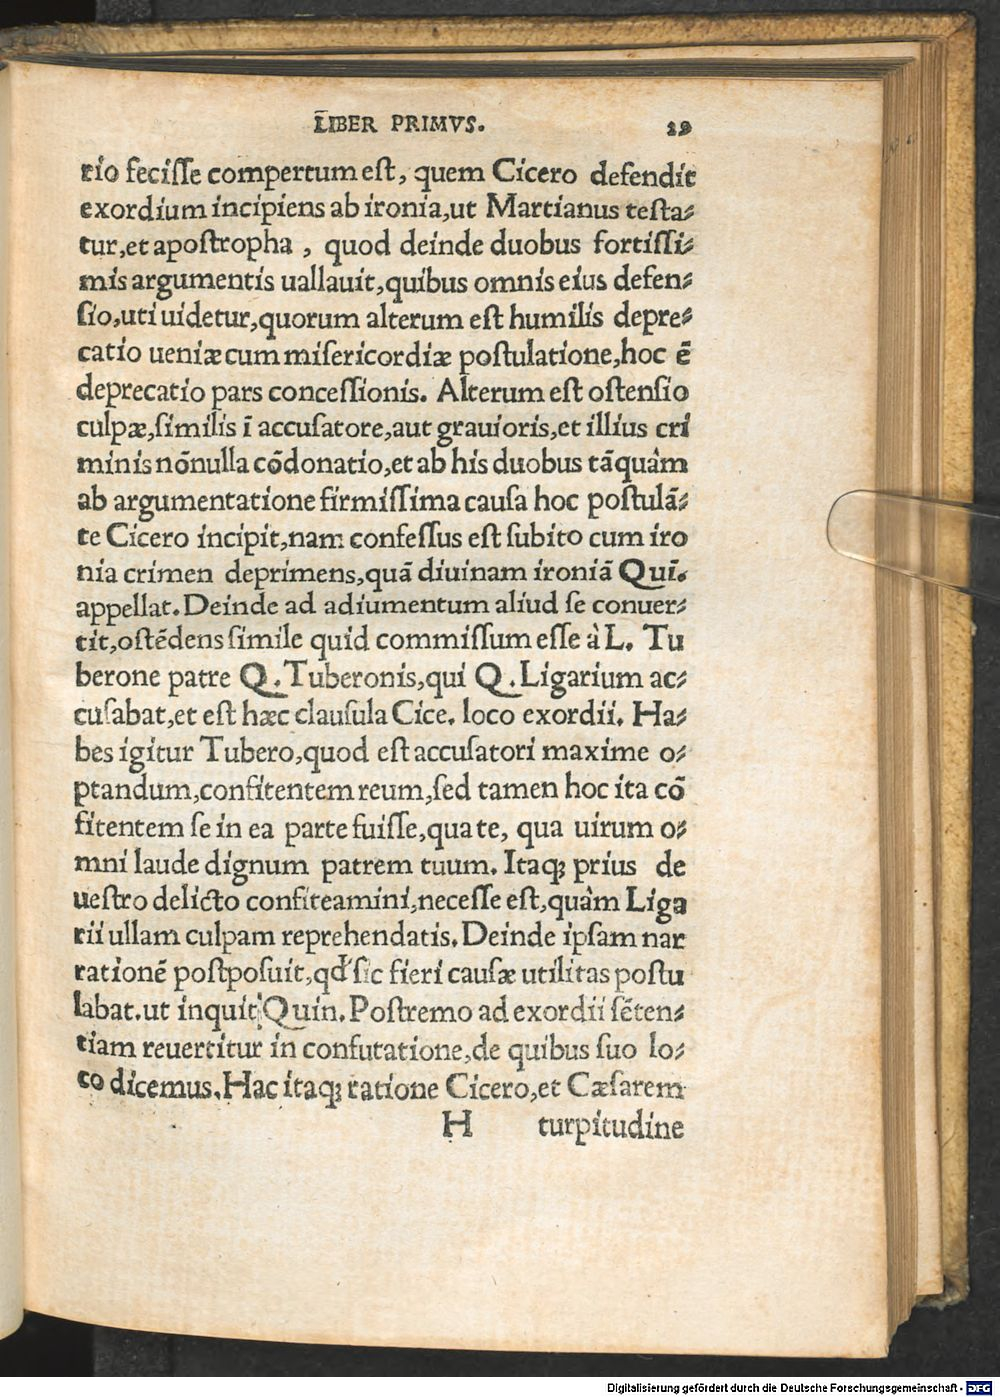 LIBER PRIMVS. 29
rio fecisse compertum est, quem Cicero defendit
exordium incipiens ab ironia,ut Martianus testa⸗
tur,et apostropha , quod deinde duobus fortissi⸗
mis argumentis uallauit,quibus omnis eius defen⸗
sio,uti uidetur,quorum alterum est humilis depre⸗
catio ueniæ cum misericordiæ postulatione,hoc ē
deprecatio pars concessionis. Alterum est ostensio
culpæ,similis ī accusatore,aut grauioris,et illius cri
minis nōnulla cōdonatio,et ab his duobus tāquàm
ab argumentatione firmissima causa hoc postulā⸗
te Cicero incipit,nam confessus est subito cum iro
nia crimen deprimens,quā diuinam ironiā Quī.
appellat.Deinde ad adiumentum aliud se conuer⸗
tit,ostēdens simile quid commissum esse à L. Tu
berone patre Q.Tuberonis,qui Q.Ligarium ac⸗
cusabat,et est hæc clausula Cice. loco exordii. Ha⸗
bes igitur Tubero,quod est accusatori maxime o⸗
ptandum,confitentem reum,sed tamen hoc ita cō
fitentem se in ea parte fuisse,qua te, qua uirum o⸗
mni laude dignum patrem tuum. Itaqꝫ prius de
uestro delicto confiteamini,necesse est,quàm Liga
rii ullam culpam reprehendatis.Deinde ipsam nar
rationē postposuit,qď sic fieri causæ utilitas postu
labat.ut inquit Quin.Postremo ad exordii sēten⸗
tiam reuertitur in confutatione,de quibus suo lo⸗
co dicemus.Hac itaqꝫ ratione Cicero,et Cæsarem
H turpitudine
Digitalisierung gefördert durch die Deutsche Forschungsgemeinschaft - DFG